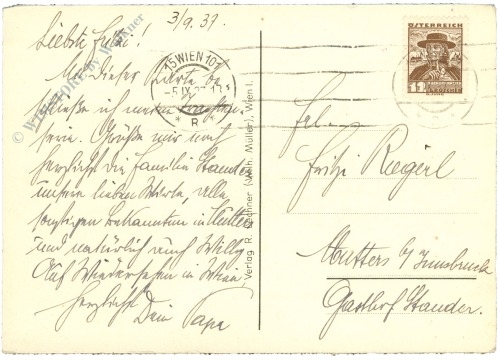 3/9.37.
Liebste Fritzi!
Mit dieser Karte be
schließe ich meine
serie. Grüße mir noch
herzlichst die Familie Stauder,
unsere lieben Wirte, alle
sonstigen Bekannten in Mutters
und natürlich auch Willy
Auf Wiedersehen in Wien,
herzlichst Dein Papa
© WIENTOKO by Würkner
15 WIEN 101
* R *
ÖSTERREICH
Verlag R. Lechner (Wilh. Müller), Wien I.
Frl.
Fritzi Riegerl
Mutters b/ Innsbruck
Gasthof Stauder.